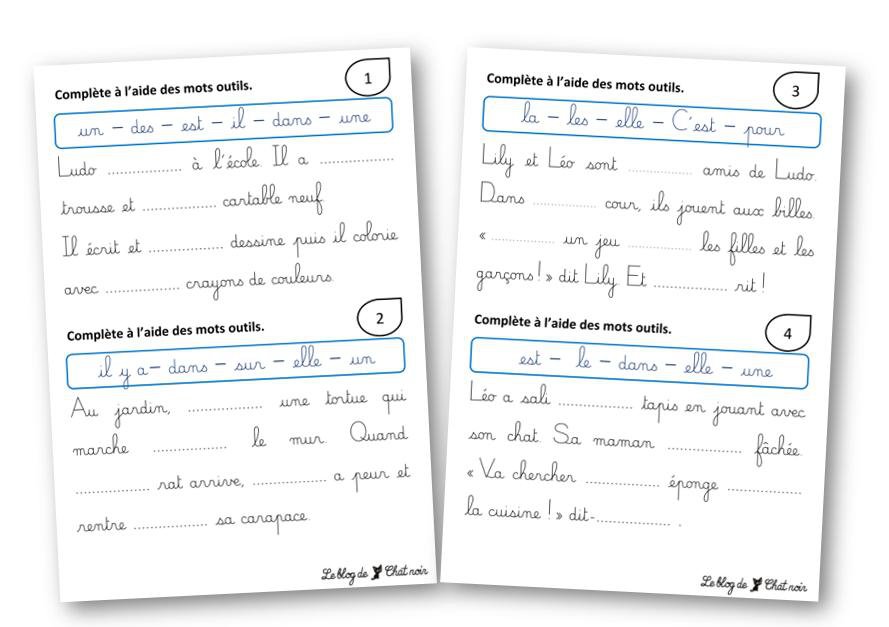 Complète à l'aide des mots outils.
1
un – des – est – il – dans – une
Ludo .................. à l'école. Il a ..................
trousse et .................. cartable neuf.
Il écrit et .................. dessine puis il colorie
avec .................. crayons de couleurs.
Complète à l'aide des mots outils.
2
il y a – dans – sur – elle – un
Au jardin, .................. une tortue qui
marche .................. le mur. Quand
.................. rat arrive, .................. a peur et
rentre .................. sa carapace.
Le blog de Chat noir
Complète à l'aide des mots outils.
3
la – les – elle – C'est – pour
Lily et Léo sont .................. amis de Ludo.
Dans .................. cour, ils jouent aux billes.
« .................. un jeu .................. les filles et les
garçons ! » dit Lily. Et .................. rit !
Complète à l'aide des mots outils.
4
est – le – dans – elle – une
Léo a sali .................. tapis en jouant avec
son chat. Sa maman .................. fâchée.
« Va chercher .................. éponge ..................
la cuisine ! » dit-.................. .
Le blog de Chat noir